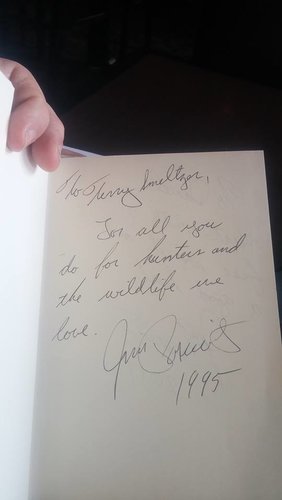 To Terry Smeltzer,
For all you
do for hunters and
the wildlife we
love.
Jim Posewitz
1995